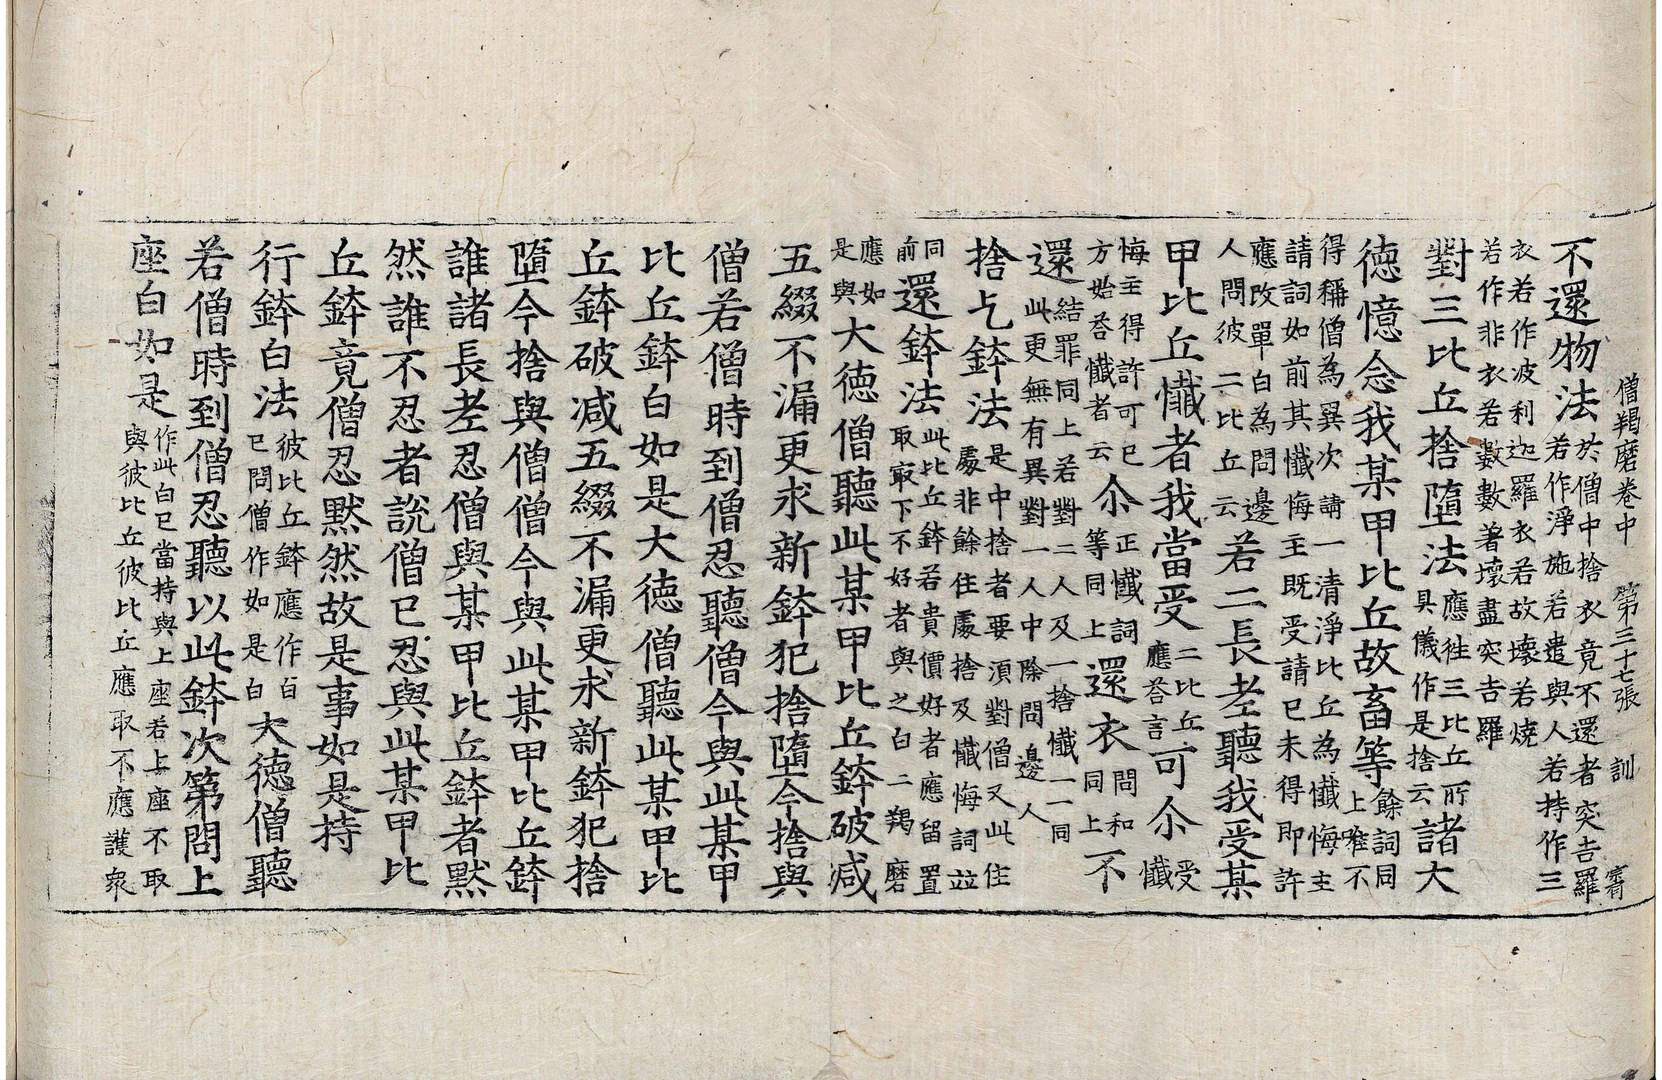 僧羯磨卷中 第三十七張 訓
不還物法 於僧中捨衣竟不還者突吉羅
若作淨施若遣與人若持作三
衣若作波利迦羅衣若故壞若燒
若作非衣若數數著壞盡突吉羅
對三比丘捨墮法 應往三比丘所
具儀作是捨云 諸大
德憶念我某甲比丘故畜等 餘詞同
上唯不
得稱僧為異次請一清淨比丘為懺悔主
請詞如前其懺悔主既受請已未得即許
應改單白為問邊
人問彼二比丘云 若二長老聽我受某
甲比丘懺者我當受 二比丘
應荅言 可尒 受
懺
悔主得許可已
方始荅懺者云 尒 正懺詞
等同上 還衣 問和
同上 不
還 結罪同上若對二人及一捨懺一一同
此更無有異對一人中除問邊人
捨乞鉢法 是中捨者要須對僧又此住
處非餘住處捨及懺悔詞並
同
前 還鉢法 此比丘鉢若貴價好者應留置
取㝡下不好者與之白二羯磨
應如
是與 大德僧聽此某甲比丘鉢破減
五綴不漏更求新鉢犯捨墮今捨與
僧若僧時到僧忍聽僧今與此某甲
比丘鉢白如是大德僧聽此某甲比
丘鉢破減五綴不漏更求新鉢犯捨
墮今捨與僧僧今與此某甲比丘鉢
誰諸長老忍僧與某甲比丘鉢者默
然誰不忍者說僧已忍與此某甲比
丘鉢竟僧忍默然故是事如是持
行鉢白法 彼比丘鉢應作白
已問僧作如是白 大德僧聽
若僧時到僧忍聽以此鉢次第問上
座白如是 作此白已當持與上座若上座不取
與彼比丘彼比丘應取不應護衆